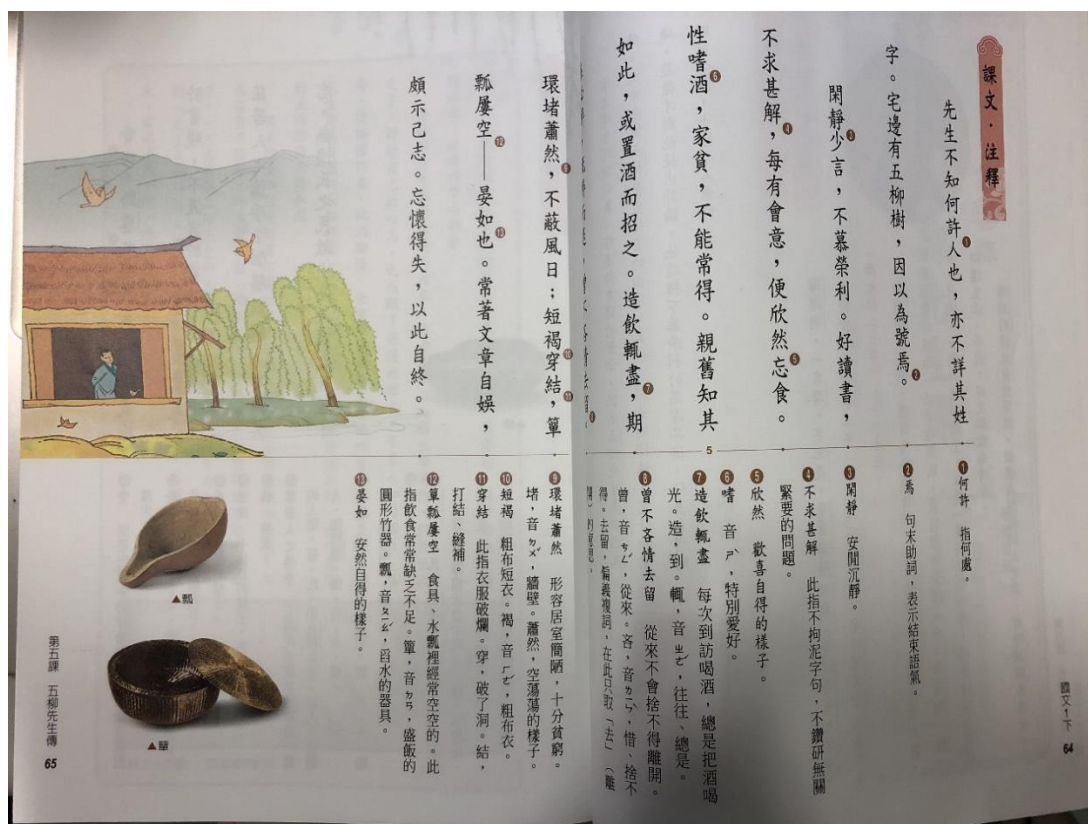 課文.注釋
先生不知何許人也,亦不詳其姓
字。宅邊有五柳樹,因以為號焉。
閑靜少言,不慕榮利。好讀書,
不求甚解,每有會意,便欣然忘食。
性嗜酒,家貧,不能常得。親舊知其
如此,或置酒而招之。造飲輒盡,期
環堵蕭然,不蔽風日;短褐穿結,簞
瓢屢空——晏如也。常著文章自娛,
頗示己志。忘懷得失,以此自終。
5
❶何許 指何處。
❷焉 句末助詞,表示結束語氣。
❸閑靜 安閒沉靜。
❹不求甚解 此指不拘泥字句,不鑽研無關
緊要的問題。
❺欣然 歡喜自得的樣子。
❻嗜 音ㄕˋ,特別愛好。
❼造飲輒盡 每次到訪喝酒,總是把酒喝
光。造,到。輒,音ㄓㄜˊ,往往、總是。
❽曾不吝情去留 從來不會捨不得離開。
曾,音ㄘㄥˊ,從來。吝,音ㄌㄧㄣˋ,惜、捨不
得。去留,偏義複詞,在此只取「去」(離
❾環堵蕭然 形容居室簡陋,十分貧窮。
堵,音ㄉㄨˇ,牆壁。蕭然,空蕩蕩的樣子。
❿短褐 粗布短衣。褐,音ㄏㄜˊ,粗布衣。
⓫穿結 此指衣服破爛。穿,破了洞。結,
打結、縫補。
⓬簞瓢屢空 食具、水瓢裡經常空空的。此
指飲食常常缺乏不足。簞,音ㄉㄢ,盛飯的
圓形竹器。瓢,音ㄆㄧㄠˊ,舀水的器具。
⓭晏如 安然自得的樣子。
▲瓢
▲簞
國文1下 64
第五課 五柳先生傳 65